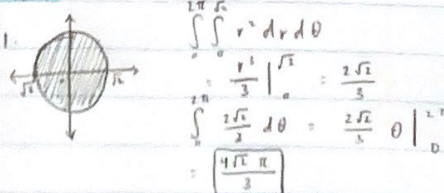 1.
√2 √2
∫₀^{2π} ∫₀^{√2} r² dr dθ
= r³/3 |₀^{√2} = 2√2/3
∫₀^{2π} 2√2/3 dθ = 2√2/3 θ |₀^{2π}
= 4√2 π/3